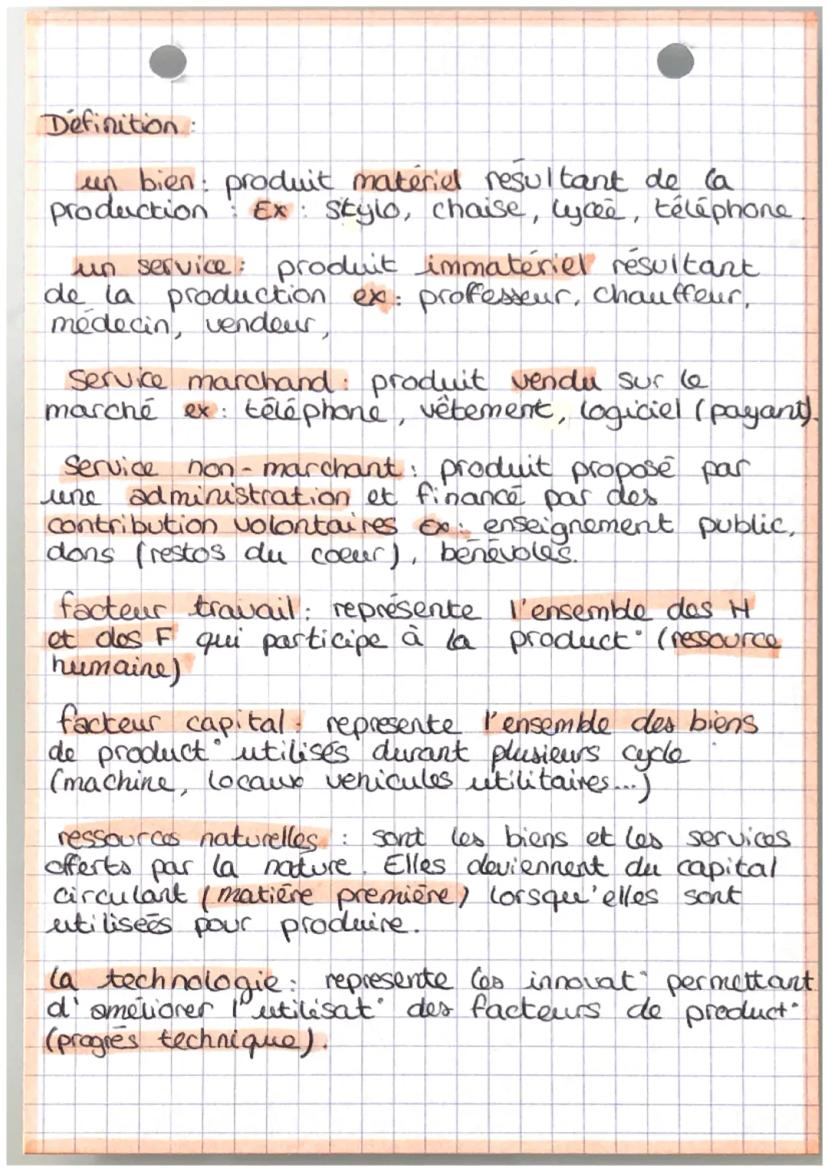 Définition :
un bien : produit matériel résultant de la
production : Ex : stylo, chaise, lycée, téléphone.
un service : produit immatériel résultant
de la production ex : professeur, chauffeur,
médecin, vendeur,
Service marchand : produit vendu sur le
marché ex : téléphone, vêtement, logiciel (payant).
Service non-marchant : produit proposé par
une administration et financé par des
contribution volontaires ex : enseignement public,
dons (restos du coeur), bénévoles.
facteur travail : représente l'ensemble des H
et des F qui participe à la product° (ressource
humaine)
facteur capital : represente l'ensemble des biens
de product° utilisés durant plusieurs cycle
(machine, locaux vehicules utilitaires...)
ressources naturelles : sont les biens et les services
offerts par la nature. Elles deviennent du capital
circulant (matière première) lorsqu'elles sont
utilisées pour produire.
la technologie : represente les innovat° permettant
d'améliorer l'utilisat° des facteurs de product°
(progrès technique).